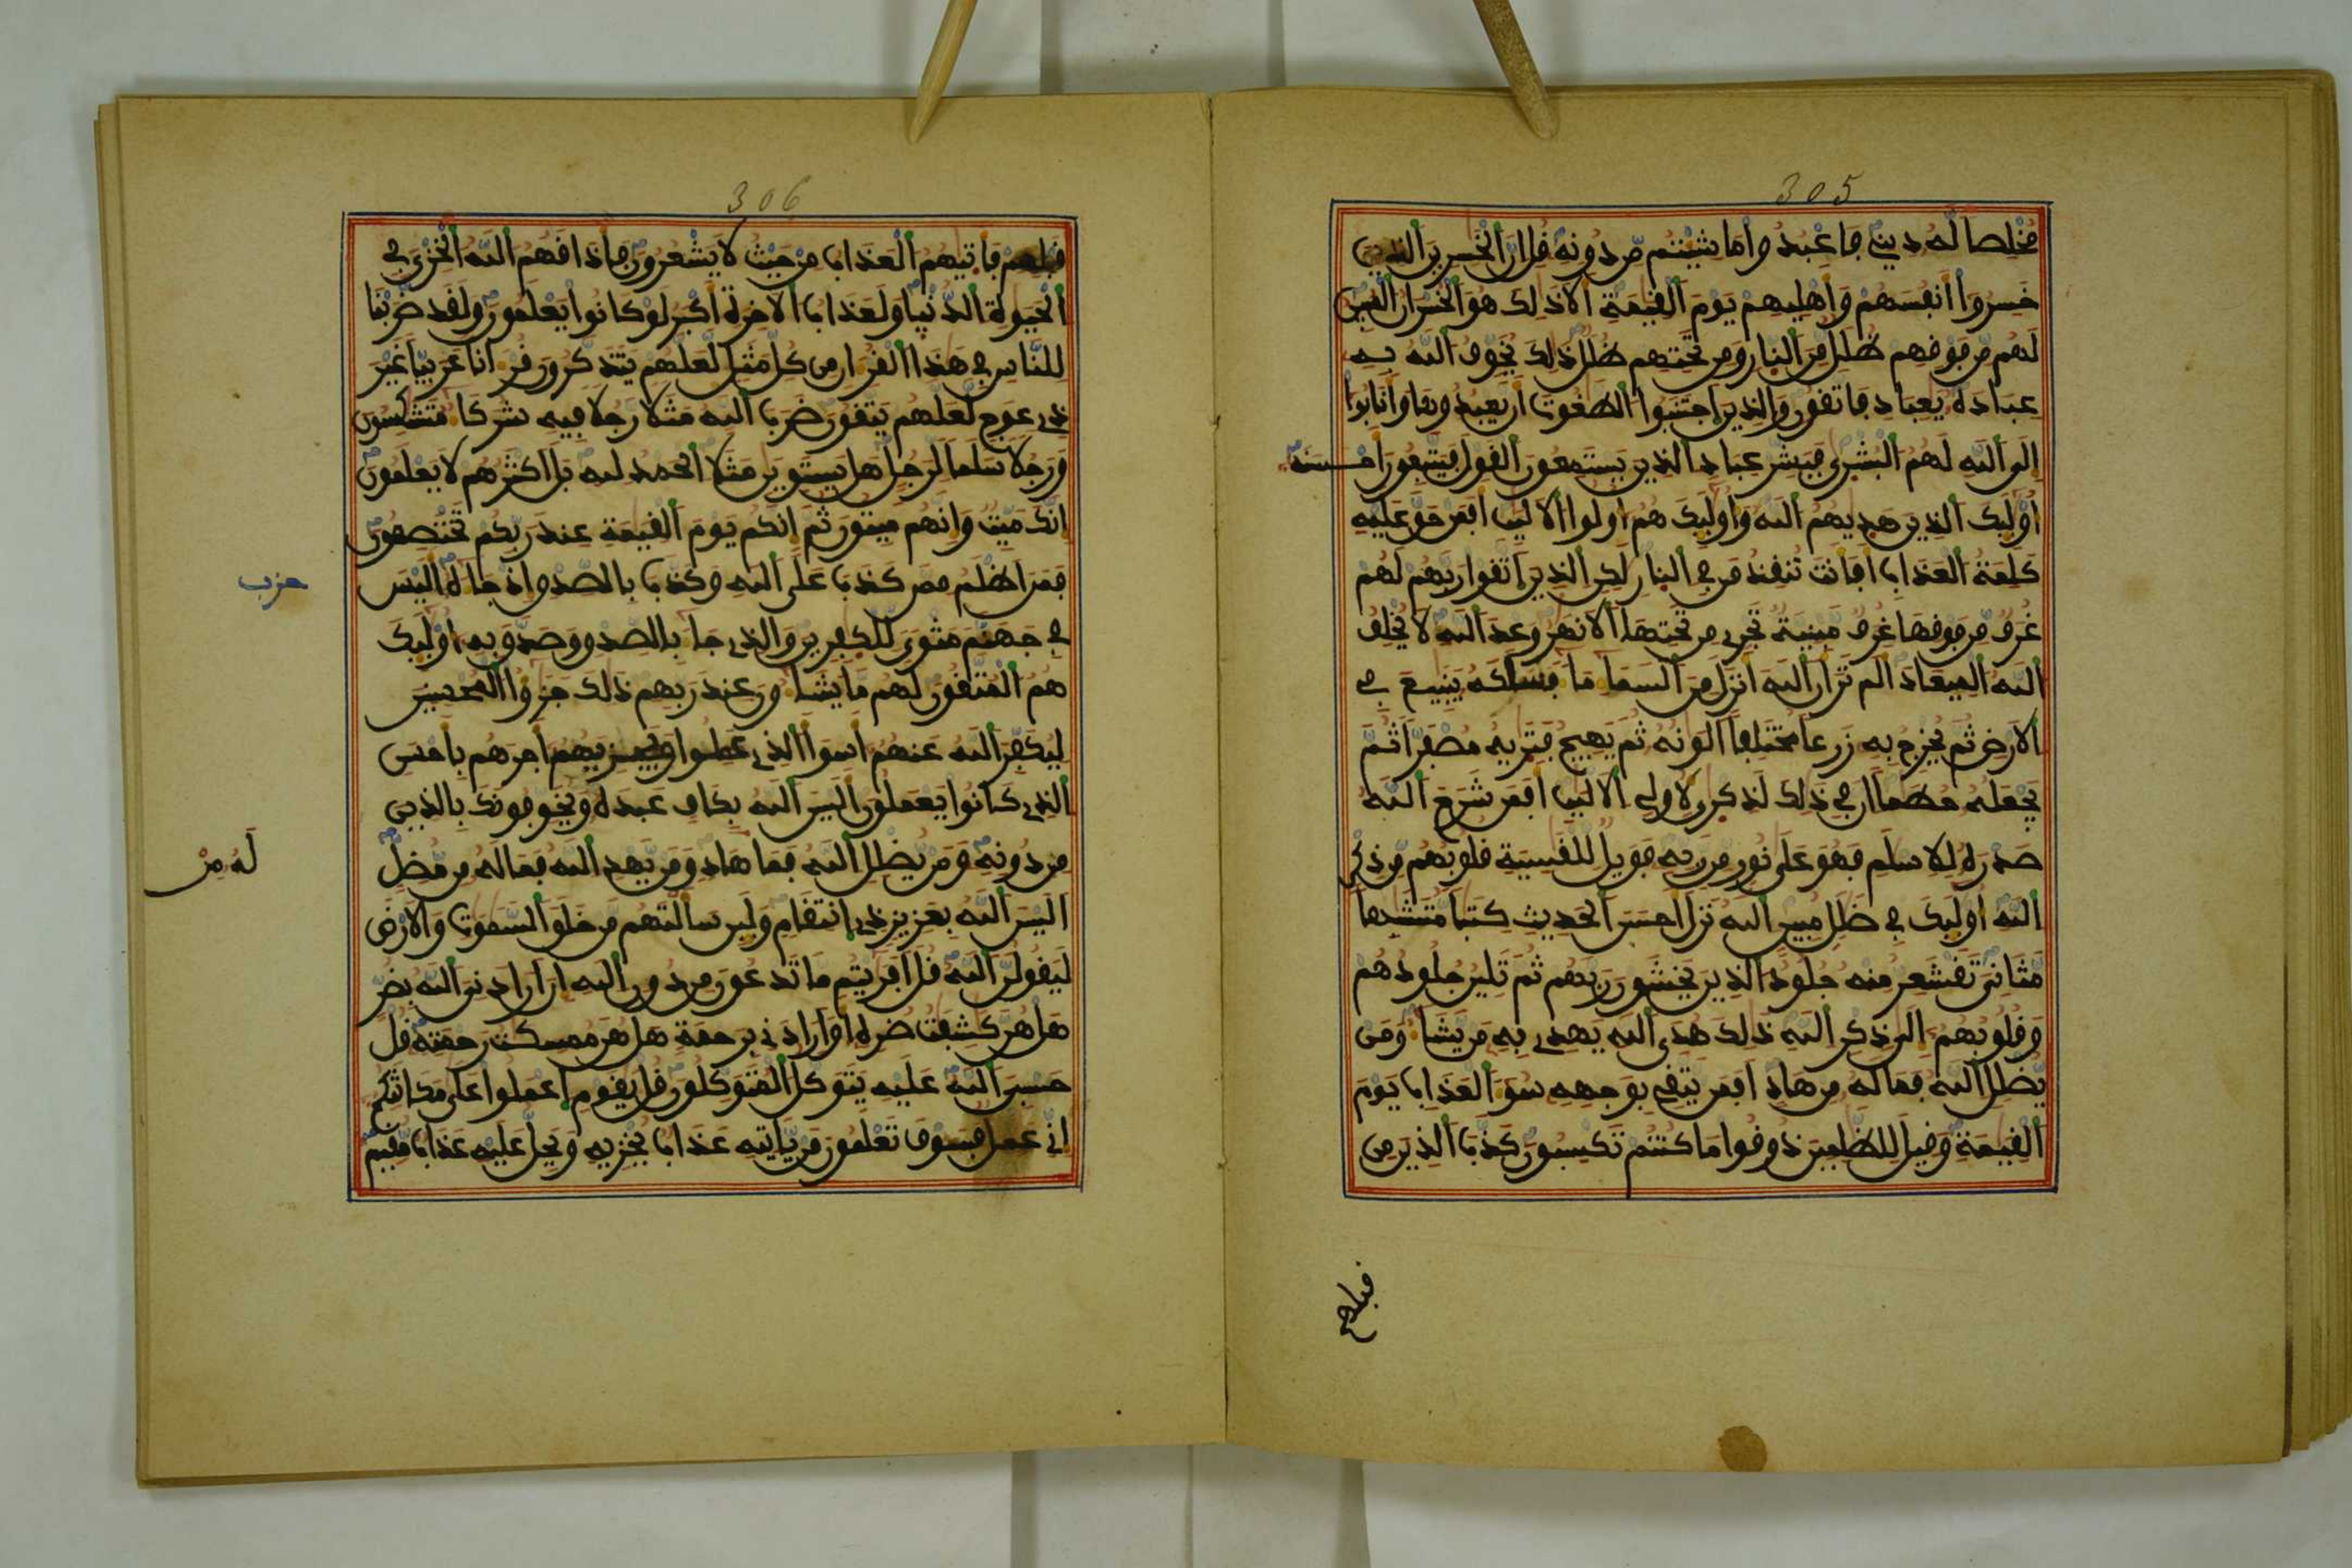 305
مخلصا له ديني فاعبدوا ما شيتم من دونه قل ان الخسرين الذين
خسروا انفسهم واهليهم يوم القيمة الا ذلك هو الخسران المبين
لهم من فوقهم ظلل من النار ومن تحتهم ظلل ذلك يخوف الله به
عباده يعباد فاتقون والذين اجتنبوا الطغوت ان يعبدوها وانابوا
الى الله لهم البشرى فبشر عباد الذين يستمعون القول فيتبعون احسنه
اوليك الذين هديهم الله واوليك هم اولوا الالبب افمن حق عليه
كلمة العذاب افانت تنقذ من في النار لكن الذين اتقوا ربهم لهم
غرف من فوقها غرف مبنية تجري من تحتها الانهر وعد الله لا يخلف
الله الميعاد الم تر ان الله انزل من السما ما فسلكه ينبيع في
الارض ثم يخرج به زرعا مختلفا الونه ثم يهيج فتريه مصفرا ثم
يجعله حطما ان في ذلك لذكرى لاولي الالبب افمن شرح الله
صدره للاسلم فهو على نور من ربه فويل للقسية قلوبهم من ذكر
الله اوليك في ضلل مبين الله نزل احسن الحديث كتبا متشبها
مثاني تقشعر منه جلود الذين يخشون ربهم ثم تلين جلودهم
وقلوبهم الى ذكر الله ذلك هدى الله يهدي به من يشا ومن
يضلل الله فما له من هاد افمن يتقي بوجهه سو العذاب يوم
القيمة وقيل للظلمين ذوقوا ما كنتم تكسبون كذب الذين من
306
قبلهم فاتيهم العذاب من حيث لا يشعرون فاذاقهم الله الخزي في
الحيوة الدنيا ولعذاب الاخرة اكبر لو كانوا يعلمون ولقد ضربنا
للناس في هذا القران من كل مثل لعلهم يتذكرون قرانا عربيا غير
ذي عوج لعلهم يتقون ضرب الله مثلا رجلا فيه شركا متشكسون
ورجلا سلما لرجل هل يستوين مثلا الحمد لله بل اكثرهم لا يعلمون
انك ميت وانهم ميتون ثم انكم يوم القيمة عند ربكم تختصمون
حزب
فمن اظلم ممن كذب على الله وكذب بالصدق اذ جاه اليس
في جهنم مثوى للكفرين والذي جا بالصدق وصدق به اوليك
هم المتقون لهم ما يشاون عند ربهم ذلك جزوا المحسنين
ليكفر الله عنهم اسوا الذي عملوا ويجزيهم اجرهم باحسن
الذي كانوا يعملون اليس الله بكاف عبده ويخوفونك بالذين
من دونه ومن يضلل الله فما هاد ومن يهد الله فما له من مضل
له من
اليس الله بعزيز ذي انتقام ولين سالتهم من خلق السموت والارض
ليقولن الله قل افريتم ما تدعون من دون الله ان ارادني الله بضر
هل هن كشفت ضره او ارادني برحمة هل هن ممسكت رحمته قل
حسبي الله عليه يتوكل المتوكلون قل يقوم اعملوا على مكانتكم
اني عمل فسوف تعلمون من ياتيه عذاب يخزيه ويحل عليه عذاب مقيم